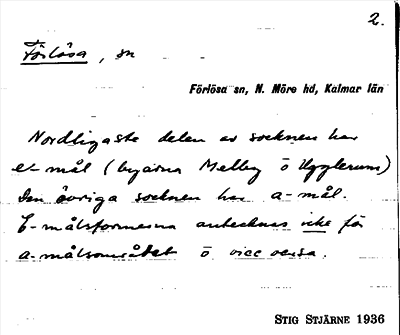 2.
Förlösa, sn
Förlösa sn, N. Möre hd, Kalmar län
Nordligaste delen av socknen har
e-mål (byarna Melby o Ugglerum)
Den övriga socknen har a-mål.
E-målsformerna antecknas icke för
a-målsområdet o vice versa.
STIG STJÄRNE 1936